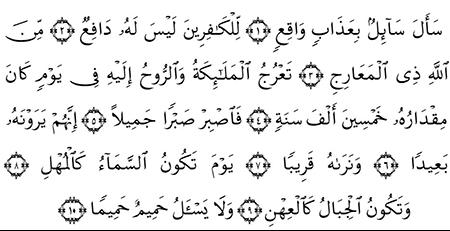 سَأَلَ سَآئِلٌۢ بِعَذَابٍ وَاقِعٍ ﴿١﴾ لِّلْكَافِرِينَ لَيْسَ لَهُۥ دَافِعٌ ﴿٢﴾ مِّنَ
ٱللَّهِ ذِى ٱلْمَعَارِجِ ﴿٣﴾ تَعْرُجُ ٱلْمَلَـٰٓئِكَةُ وَٱلرُّوحُ إِلَيْهِ فِى يَوْمٍ كَانَ
مِقْدَارُهُۥ خَمْسِينَ أَلْفَ سَنَةٍ ﴿٤﴾ فَٱصْبِرْ صَبْرًا جَمِيلاً ﴿٥﴾ إِنَّهُمْ يَرَوْنَهُۥ
بَعِيدًا ﴿٦﴾ وَنَرَىٰهُ قَرِيبًا ﴿٧﴾ يَوْمَ تَكُونُ ٱلسَّمَآءُ كَٱلْمُهْلِ ﴿٨﴾
وَتَكُونُ ٱلْجِبَالُ كَٱلْعِهْنِ ﴿٩﴾ وَلَا يَسْـَٔلُ حَمِيمٌ حَمِيمًا ﴿١٠﴾